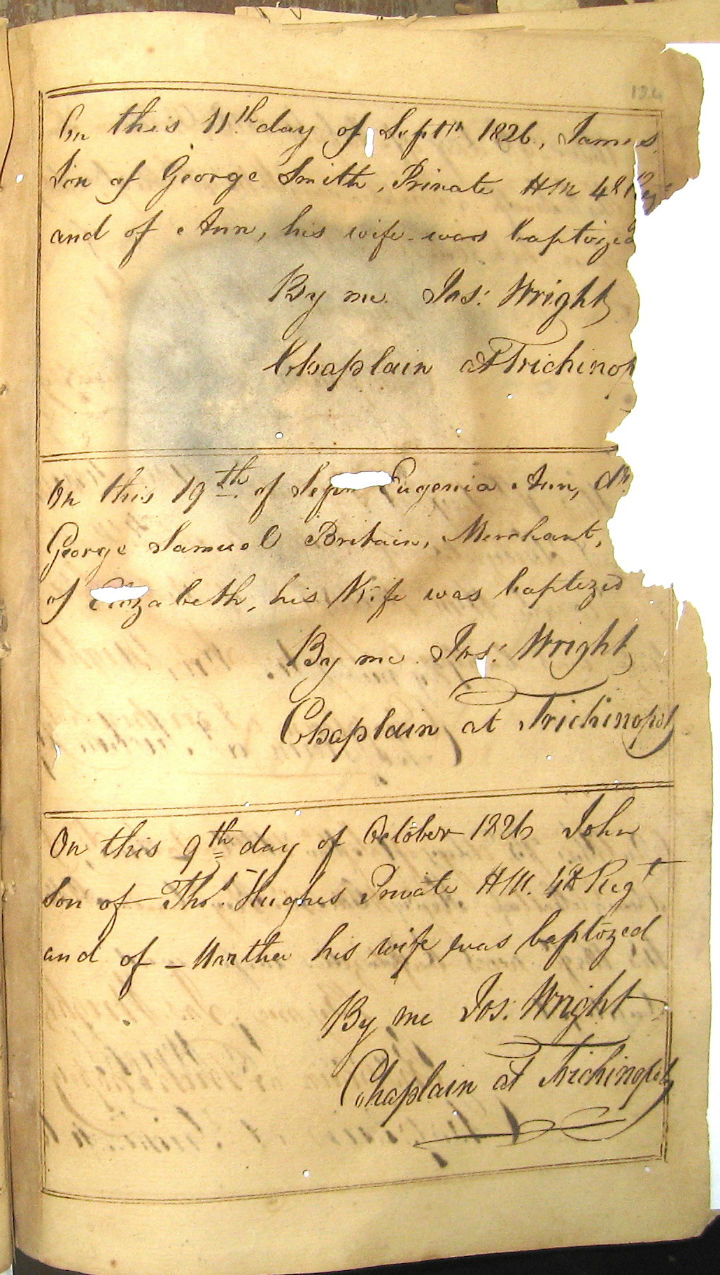 124
On this 11th day of Septr 1826, James
Son of George Smith, Private HM 48 Reg
and of Ann, his wife was baptized
By me Jos: Wright
Chaplain at Trichinop
On this 19th of Sepr Eugenia Ann, dr
George Samuel Britain, Merchant,
of Elizabeth, his Wife was baptized
By me Jos: Wright
Chaplain at Trichinopoly
On this 9th day of October 1826 John
Son of Thos. Hughes Private H.M. 48 Regt
and of Martha his wife was baptized
By me Jos: Wright
Chaplain at Trichinopoly